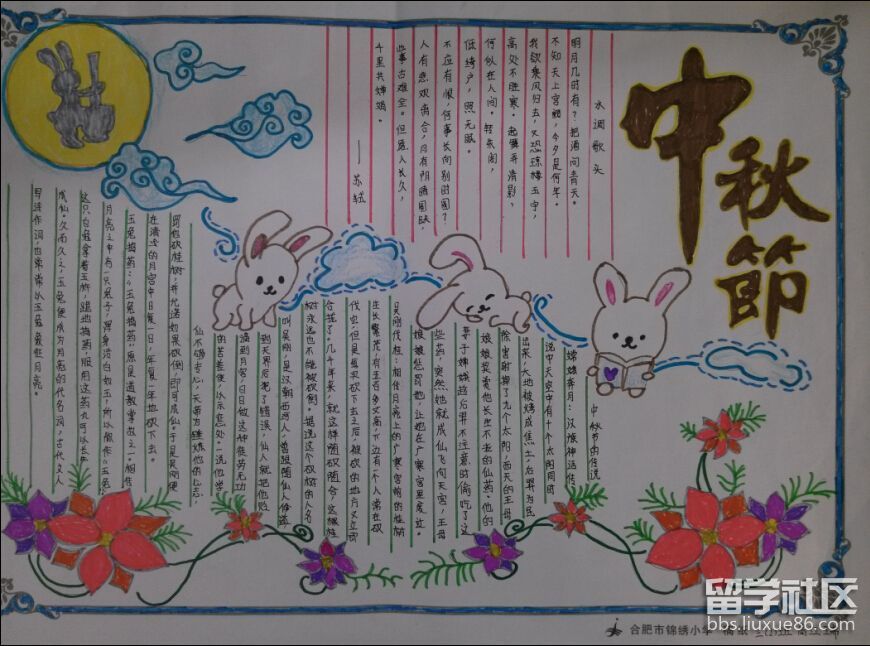 中秋節
水调歌头
明月几时有？把酒问青天。
不知天上宫阙，今夕是何年。
我欲乘风归去，又恐琼楼玉宇，
高处不胜寒。起舞弄清影，
何似在人间。转朱阁，
低绮户，照无眠。
不应有恨，何事长向别时圆？
人有悲欢离合，月有阴晴圆缺，
此事古难全。但愿人长久，
千里共婵娟。
——苏轼
中秋节的传说
嫦娥奔月：汉族神话传
说中天空中有十个太阳同时
出来，大地被烤成焦土，后羿为民
除害射掉了九个太阳，西天的王母
娘娘奖赏他长生不老的仙药。他的
妻子嫦娥趁后羿不注意时偷吃了这
些药，突然她就成仙飞向天宫，王母
娘娘惩罚她，让她在广寒宫里度过。
吴刚伐桂：相传月亮上的广寒宫前的桂树
生长繁茂，有五百多丈高，下边有个人常在砍
伐它，但是每次砍下去之后，被砍的地方又立即
合拢了。几千年来，就这样随砍随合，这棵桂
树永远也不能被砍倒。据说这个砍树的人名
叫吴刚，是汉朝西河人，曾跟随仙人修道
到天界后犯了错误，仙人就把他贬
谪到月宫，日日做这种徒劳无功
的苦差使，以示惩处。
仙不够专心，天帝为锤炼他的心志
罚他砍桂树，并允诺如果砍倒，即可成仙。于是吴刚便
在清冷的月宫中日复一日，年复一年地砍下去。
玉兔捣药：玉兔捣药，原是道教掌故之一。相传
月亮之中有一只兔子，浑身洁白如玉，所以称作“玉兔”
这只白兔拿着玉杵，跪地捣药，服用这药丸可以长生
成仙。久而久之，玉兔便成为月亮的代名词，古代文人
写诗作词，也常常以玉兔象征月亮。
合肥市锦绣小学
留学社区
bbs.liuxue86.com